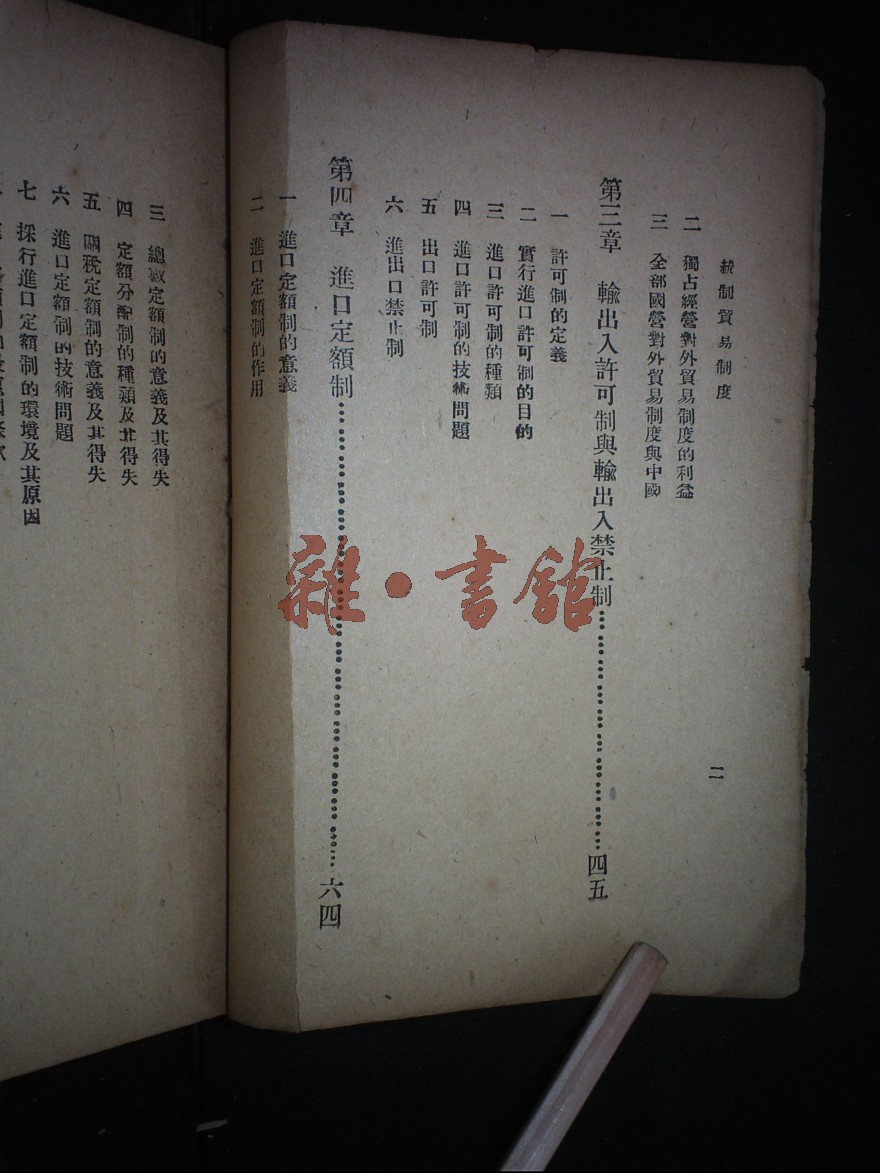 統制貿易制度
二
二 獨占經營對外貿易制度的利益
三 全部國營對外貿易制度與中國
第三章 輸出入許可制與輸出入禁止制……四五
一 許可制的定義
二 實行進口許可制的目的
三 進口許可制的種類
四 進口許可制的技術問題
五 出口許可制
六 進出口禁止制
第四章 進口定額制……六四
一 進口定額制的意義
二 進口定額制的作用
三 總數定額制的意義及其得失
四 定額分配制的種類及其得失
五 關稅定額制的意義及其得失
六 進口定額制的技術問題
七 採行進口定額制的環境及其原因
雜·書館